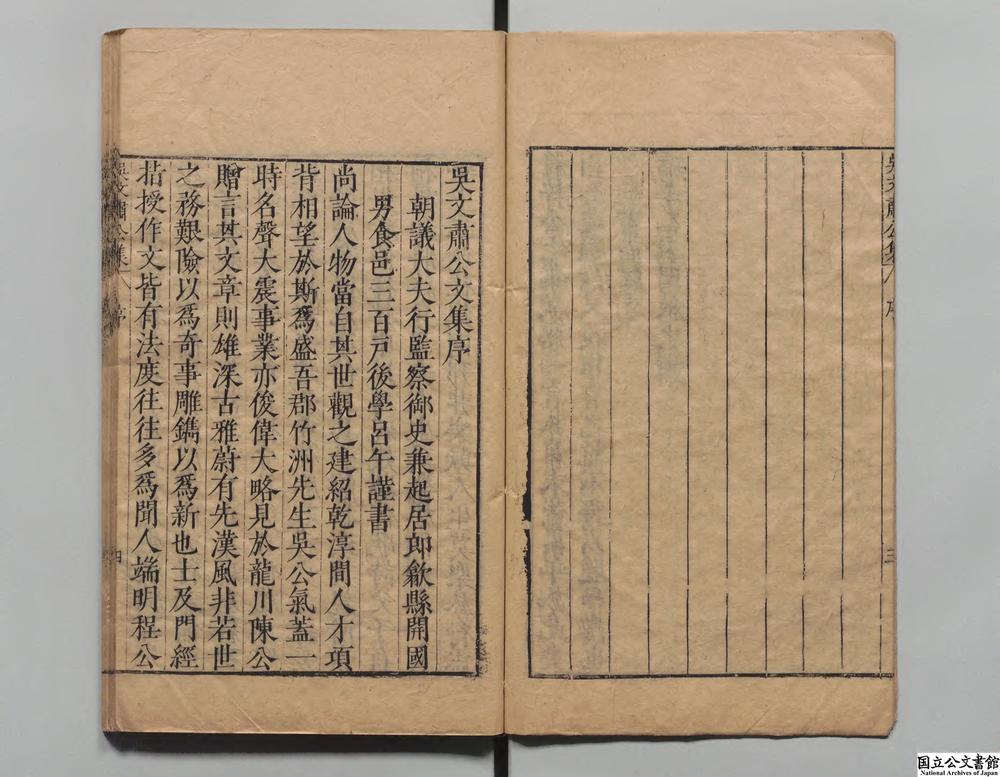 吳文肅公集 序
三
吳文肅公文集序
朝議大夫行監察御史兼起居郎歙縣開國
男食邑三百戸後學呂午謹書
尚論人物當自其世觀之建紹乾淳間人才項
背相望於斯爲盛吾郡竹洲先生吳公氣蓋一
時名聲大震事業亦俊偉大略見於龍川陳公
贈言其文章則雄深古雅蔚有先漢風非若世
之務艱險以爲奇事雕鐫以爲新也士及門經
指授作文皆有法度往往多爲聞人端明程公
吳文肅公集 序
四
国立公文書館
National Archives of Japan